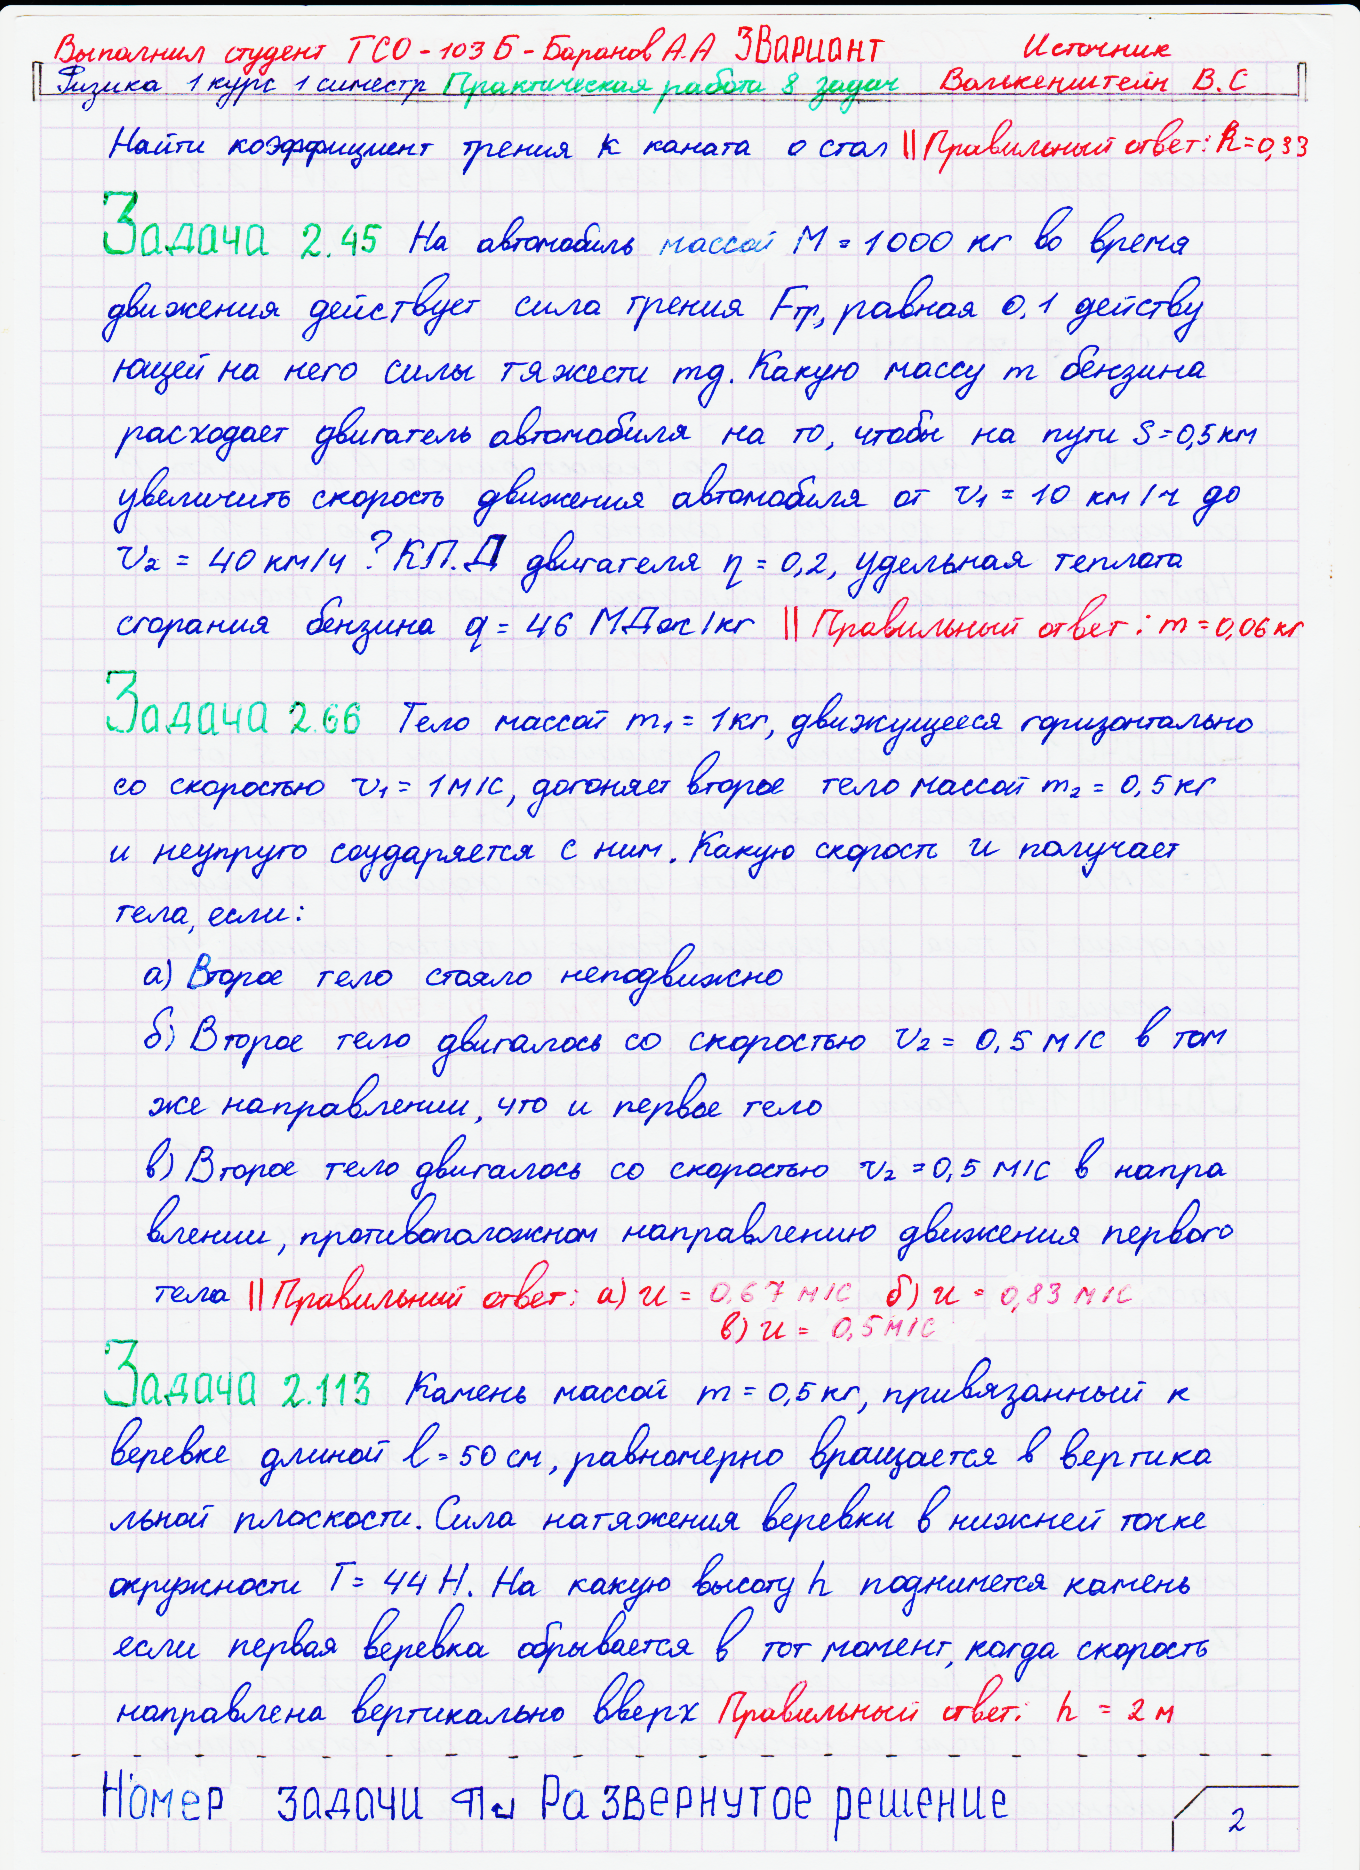 Выполнил студент ТСО-103Б-Баранов А.А 3Вариант Источник
Физика 1 курс 1 симестр Практическая работа 8 задач Волькенштейн В.С
Найти коэффициент трения k каната о стол || Правильный ответ: k=0,33
Задача 2.45 На автомобиль массой M = 1000 кг во время
движения действует сила трения Fтр, равная 0,1 действу
ющей на него силы тяжести mg. Какую массу m бензина
расходает двигатель автомобиля на то, чтобы на пути S=0,5км
увеличить скорость движения автомобиля от v1 = 10 км/ч до
v2 = 40 км/ч ? КП.Д двигателя η = 0,2, удельная теплота
сгорания бензина q = 46 МДж/кг || Правильный ответ: m = 0,06кг
Задача 2.66 Тело массой m1 = 1кг, движущееся горизонтально
со скоростью v1 = 1м/с, догоняет второе тело массой m2 = 0,5кг
и неупруго соударяется с ним. Какую скорость u получает
тела, если:
а) Второе тело стояло неподвижно
б) Второе тело двигалось со скоростью v2 = 0,5 м/с в том
же направлении, что и первое тело
в) Второе тело двигалось со скоростью v2 = 0,5 м/с в напра
влении, противоположном направлению движения первого
тела || Правильный ответ: а) u = 0,67 м/с б) u = 0,83 м/с
в) u = 0,5м/с
Задача 2.113 Камень массой m = 0,5кг, привязанный к
веревке длиной l = 50 см, равномерно вращается в вертика
льной плоскости. Сила натяжения веревки в нижней точке
окружности T = 44 Н. На какую высоту h поднимется камень
если первая веревка обрывается в тот момент, когда скорость
направлена вертикально вверх Правильный ответ: h = 2м
Номер задачи Развернутое решение
2